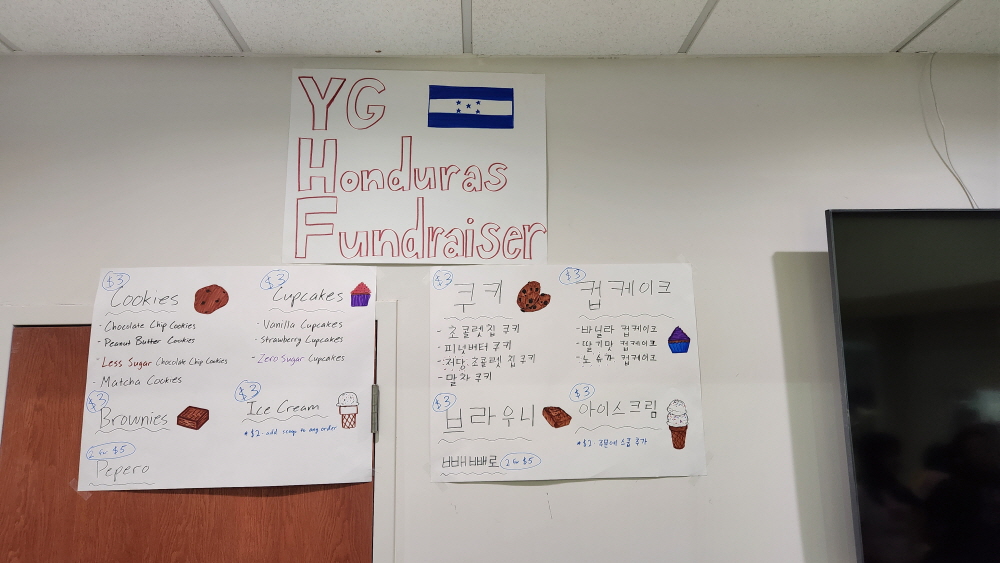 YG
Honduras
Fundraiser
$3
Cookies
- Chocolate Chip Cookies
- Peanut Butter Cookies
- Less Sugar Chocolate Chip Cookies
- Matcha Cookies
$3
Cupcakes
- Vanilla Cupcakes
- Strawberry Cupcakes
- Zero Sugar Cupcakes
$3
Brownies
$3
Ice Cream
* $2 - add scoop to any order
2 for $5
Pepero
$3
쿠키
- 초콜렛칩 쿠키
- 피넛버터 쿠키
- 저당 초콜렛 칩 쿠키
- 말차 쿠키
$3
컵케이크
- 바닐라 컵케이크
- 딸기맛 컵케이크
- 노 슈가 컵케이크
$3
브라우니
$3
아이스크림
* $2 - 주문에 스쿱 추가
빼빼로 2 for $5